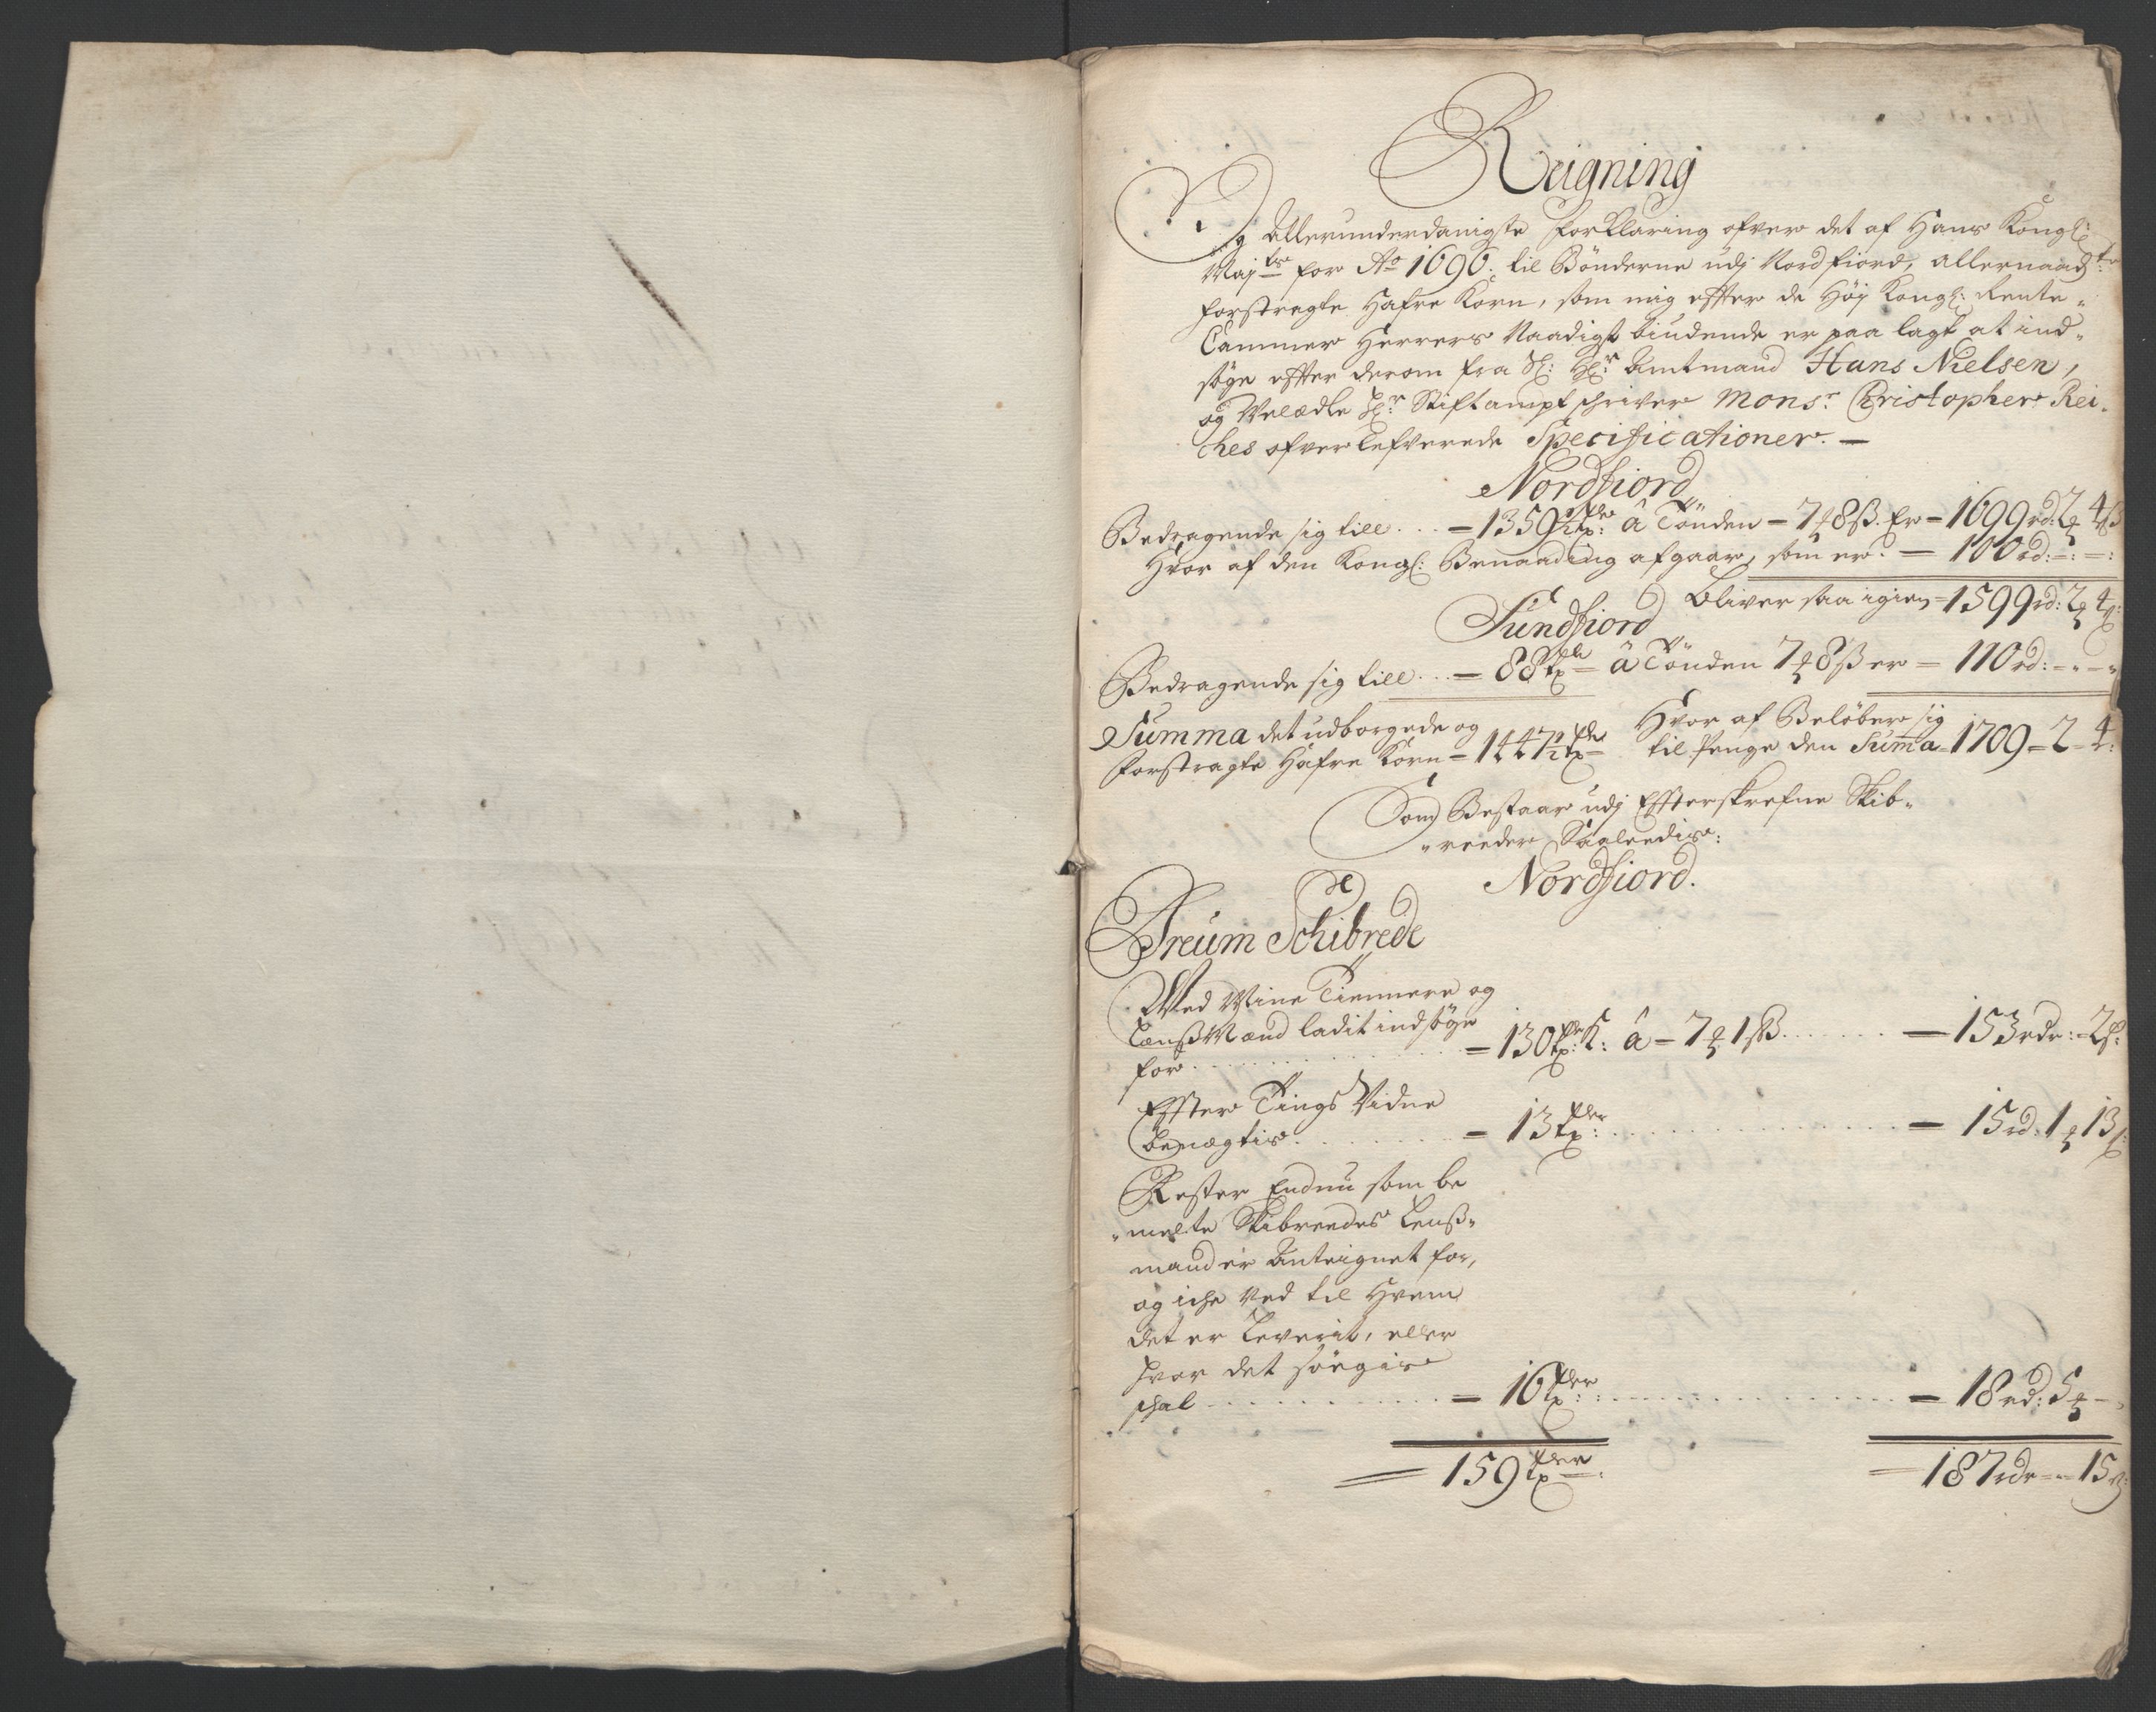 Reigning
Og Allerunderdanigste forklaring ofver det af Hans Kongl:
Maj:ts for Ao 1696. til Bönderne udj Nordfiord, allernaadste
forstragte Hafre Korn, som mig effter de Höj Kongl: Rente-
Cammer Herrers Naadigst biudende er paa lagt at ind-
söge effter derom fra Sl: Hr: Amtmand Hans Nielsen,
og Velædle Hr: Stiftamptschriver Monsr: Christopher Rei-
ches ofverlefverede Specificationer. —
Nordfiord
Bedragende sig till ... = 1359½ Tr: â Tönden = 7 8ß. Er = 1699 rd: 2 4ß
Hvor af den Kongl: Benaading afgaar, som er. — 100 rd: - : - :
Bliver saa igien = 1599 rd: 2 4ß
Sundfiord
Bedragende sig till ... = 88 Tr â Tönden 7 8ß er = 110 rd: - . -
Summa det udborgede og Hvor af Belöber sig
forstragte Hafre Korn = 1447½ Tr til Penge den Summa = 1709 = 2 = 4:
Som Bestaar udj Effterskrefne Skib-
reeder Saaleedis:
Nordfiord.
Schibrede
Med Mine Tiennere og
Lensmænd ladit indsöge
for ... = 130 Tr: K: â = 7 1ß ... = 153 rdr: 2ß:
Effter Tings Vidne
benegtis ... = 13 Tr: ... = 15 rd: 1 13ß
Rester Endnu som be
melte Skibreedes Lens-
mand er Anteignet for,
og iche ved til Hvem
det er Leverit, eller
hvor det söegis
schal ... = 16 Tr: ... = 18 rd: 5 -
= 159 Tr: = 187 rdr = - 15ß